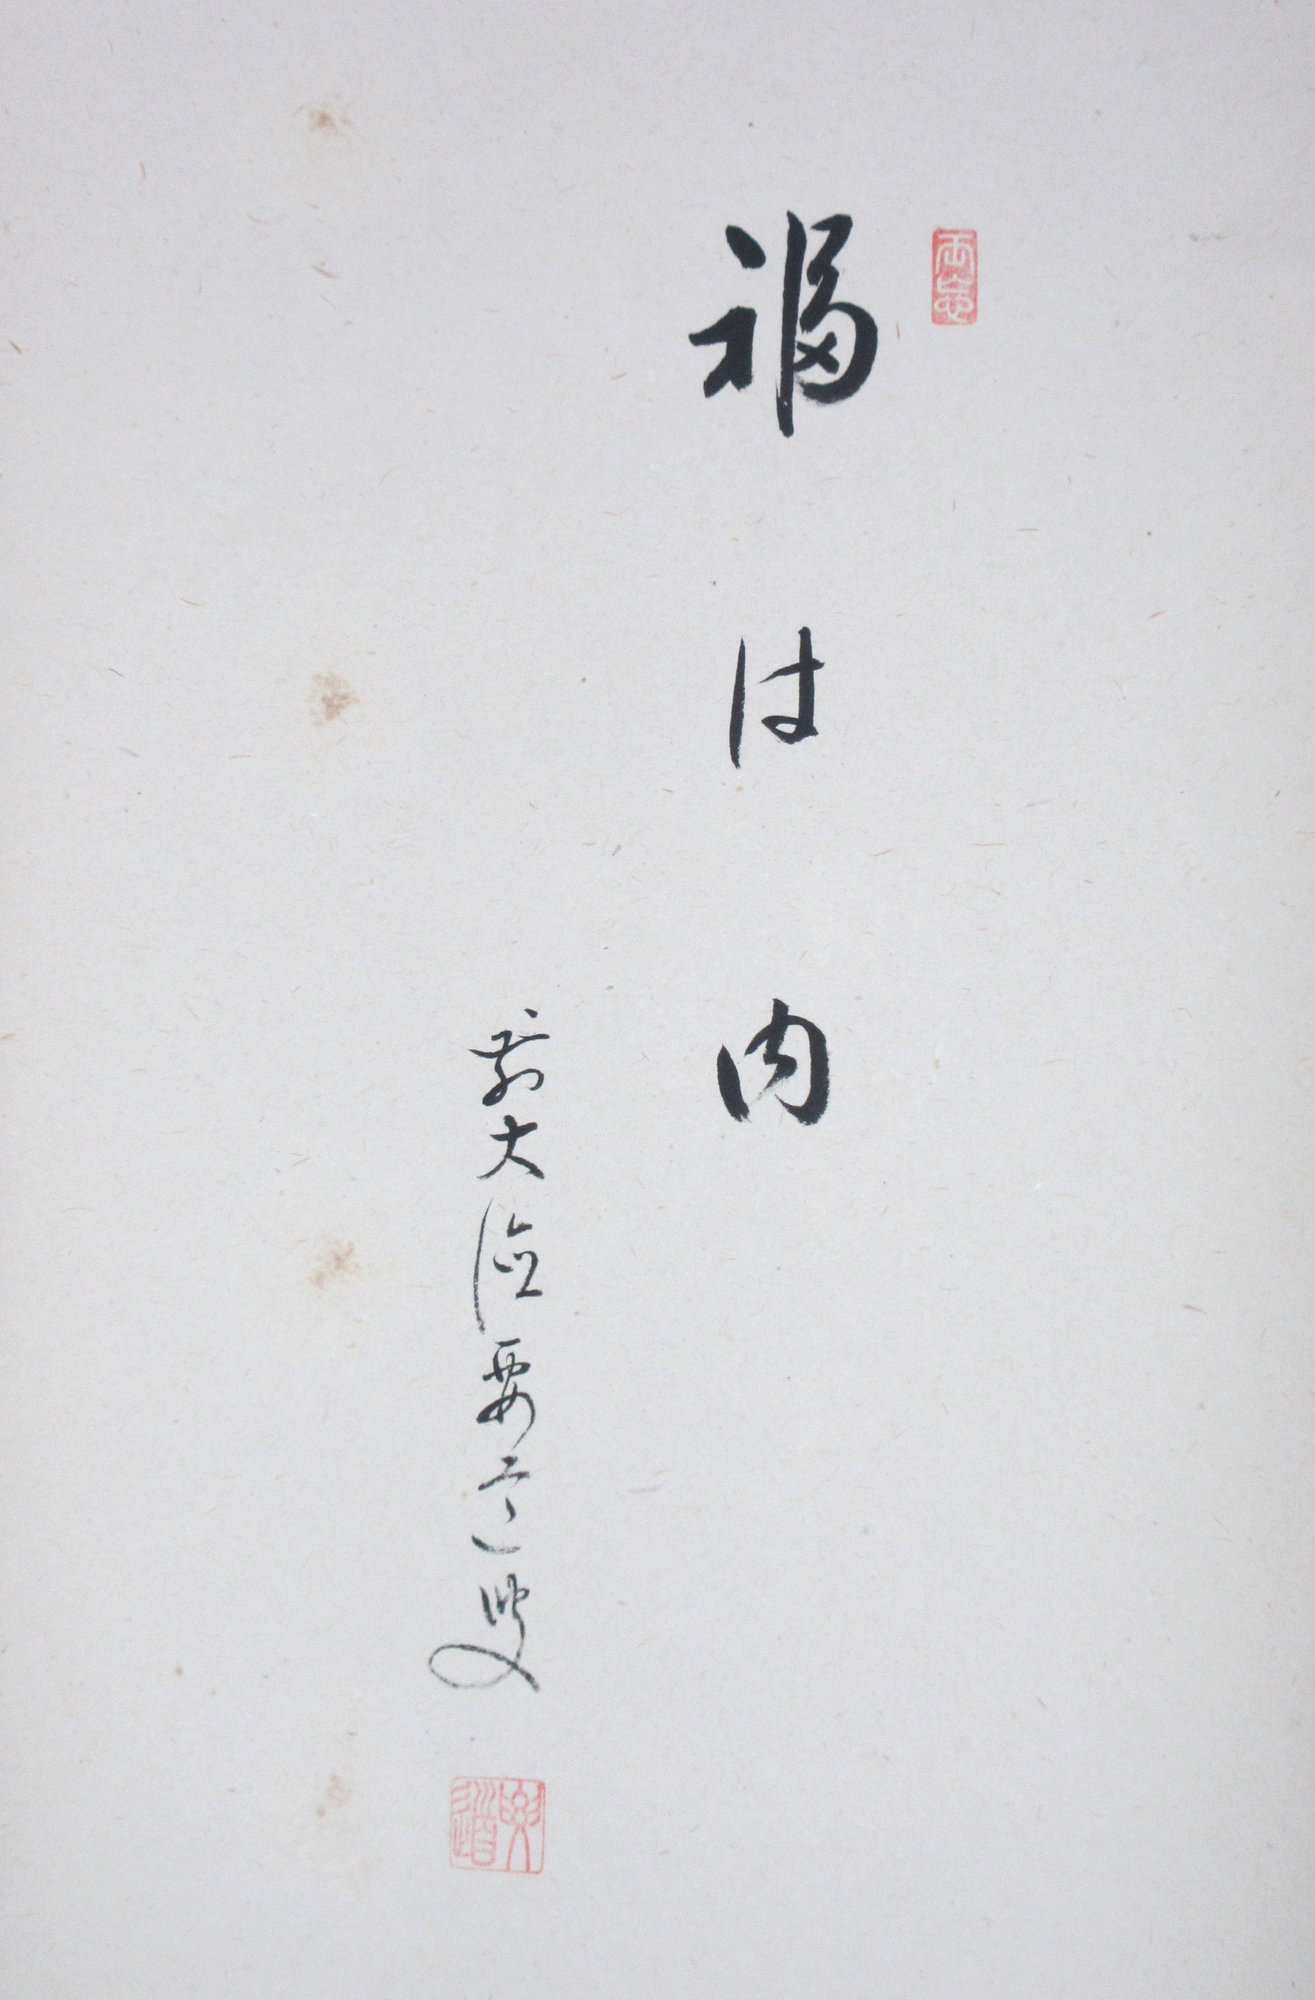 福は内
前大徳要道叟